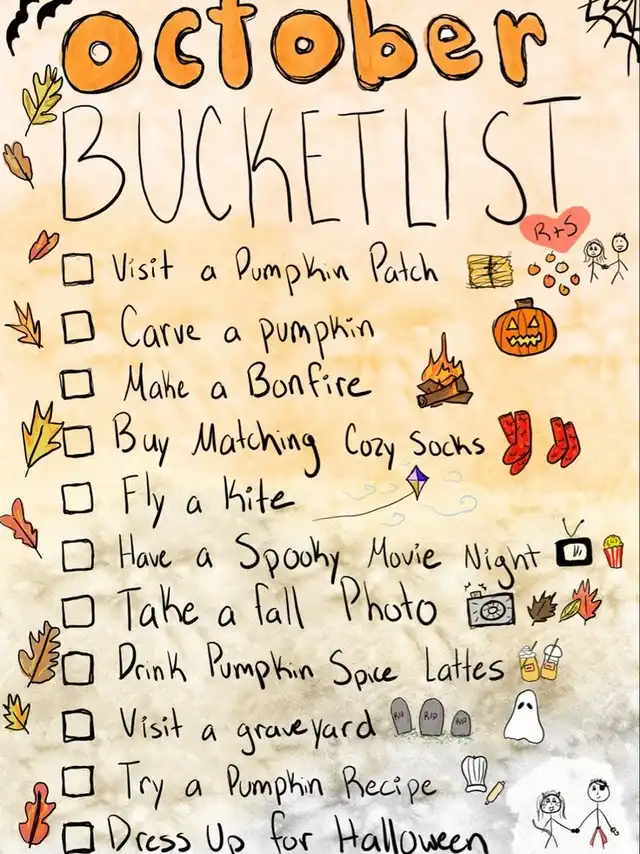 october
BUCKETLIST
R+S
Visit a Pumpkin Patch
Carve a pumpkin
Make a Bonfire
Buy Matching Cozy Socks
Fly a Kite
Have a Spooky Movie Night
Take a fall Photo
Drink Pumpkin Spice Lattes
Visit a graveyard
RIP RIP RIP
Try a Pumpkin Recipe
Dress Up for Halloween